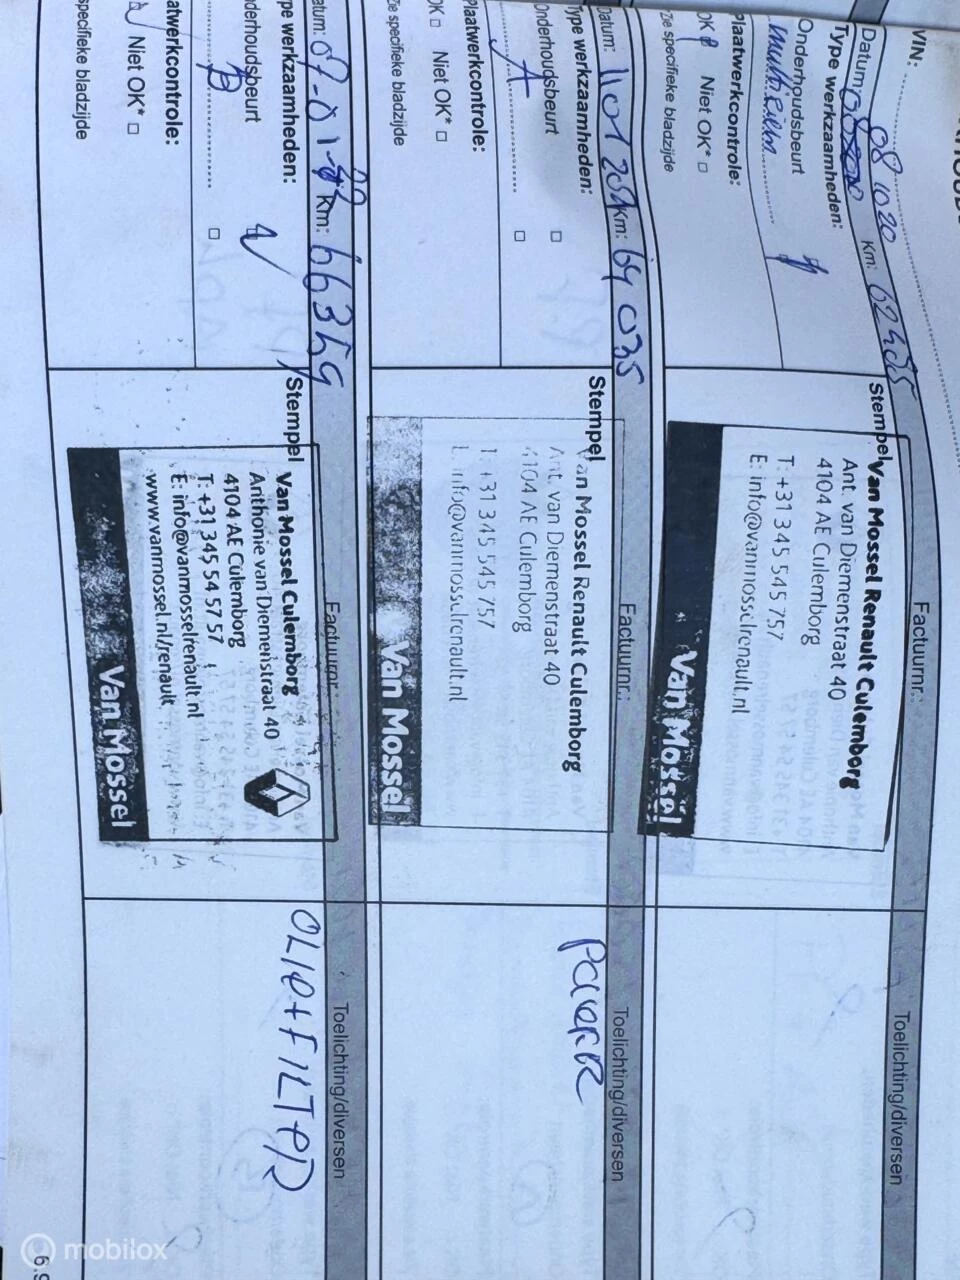 VIN:
Datum: 08 10 20 Km: 62435 Factuurnr.: Toelichting/diversen
Type werkzaamheden: Stempel
Onderhoudsbeurt
Plaatwerkcontrole:
OK Niet OK* □
*Zie specifieke bladzijde
Van Mossel Renault Culemborg
Ant. van Diemenstraat 40
4104 AE Culemborg
T: +31 345 545 757
E: info@vanmosselrenault.nl
Van Mossel
Datum: 11 01 202 Km: 64 035 Factuurnr.: Toelichting/diversen
Type werkzaamheden: □ Stempel
Onderhoudsbeurt □
A
Plaatwerkcontrole:
OK □ Niet OK* □
*Zie specifieke bladzijde
Van Mossel Renault Culemborg
Ant. van Diemenstraat 40
4104 AE Culemborg
T: +31 345 545 757
E: info@vanmosselrenault.nl
Van Mossel
atum: 07-01- Km: 66349 Factuurnr.: Toelichting/diversen
pe werkzaamheden: Stempel
nderhoudsbeurt
B □
aatwerkcontrole:
Niet OK* □
specifieke bladzijde
Van Mossel Culemborg
Anthonie van Diemenstraat 40
4104 AE Culemborg
T: +31 345 54 57 57
E: info@vanmosselrenault.nl
www.vanmossel.nl/renault
Van Mossel
OLIE+FILTER
6.9
mobilox